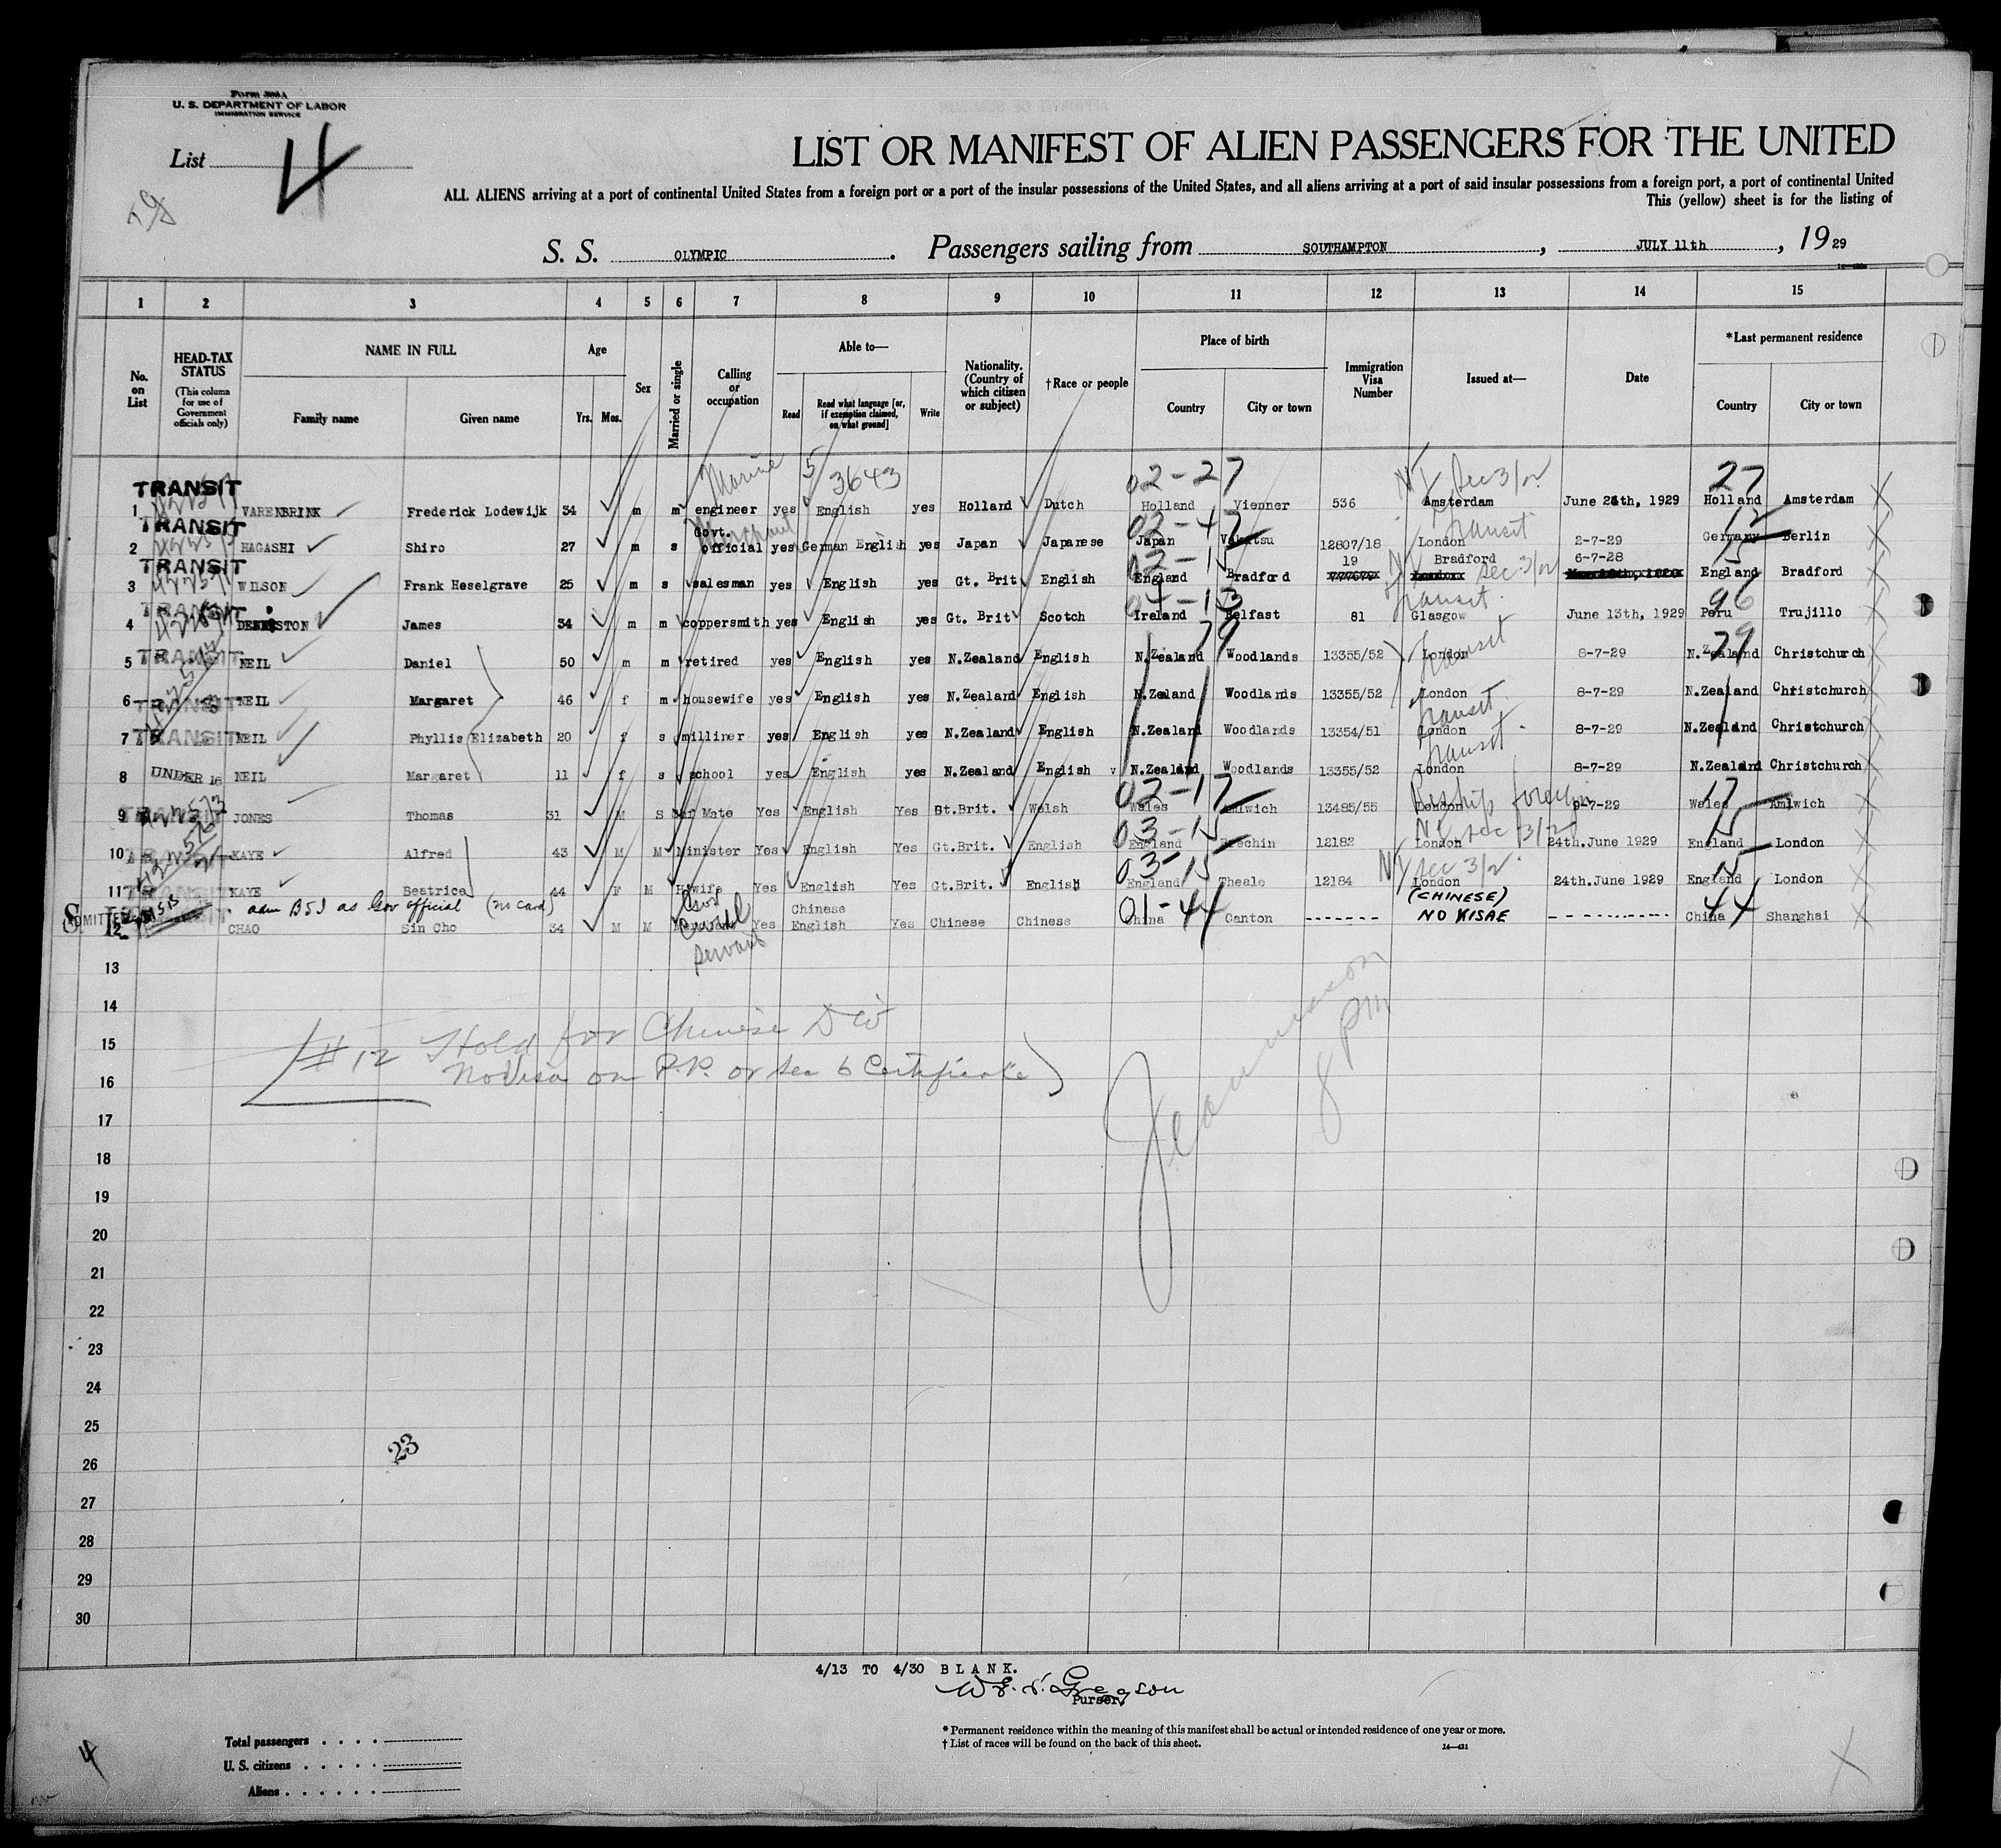 Form 500 A
U. S. DEPARTMENT OF LABOR
IMMIGRATION SERVICE
List 4
LIST OR MANIFEST OF ALIEN PASSENGERS FOR THE UNITED
ALL ALIENS arriving at a port of continental United States from a foreign port or a port of the insular possessions of the United States, and all aliens arriving at a port of said insular possessions from a foreign port, a port of continental United
This (yellow) sheet is for the listing of
S. S. OLYMPIC. Passengers sailing from SOUTHAMPTON, JULY 11th, 1929
1 2 3 4 5 6 7 8 9 10 11 12 13 14 15
No. on List
HEAD-TAX STATUS
(This column for use of Government officials only)
NAME IN FULL
Family name Given name
Age
Yrs. Mos.
Sex
Married or single
Calling or occupation
Able to—
Read Read what language [or, if exemption claimed, on what ground] Write
Nationality. (Country of which citizen or subject)
†Race or people
Place of birth
Country City or town
Immigration Visa Number
Issued at—
Date
*Last permanent residence
Country City or town
Marine 5 3643 02-27 NY Sec 3/2 27
TRANSIT
1 VARENBRINK Frederick Lodewijk 34 m m engineer yes English yes Holland Dutch Holland Vienner 536 Amsterdam June 24th, 1929 Holland Amsterdam
TRANSIT
2 HAGASHI Shiro 27 m s Govt. official yes German English yes Japan Japanese Japan 12807/18 London transit 2-7-29 Germany Berlin
TRANSIT
3 WILSON Frank Heselgrave 25 m s salesman yes English yes Gt. Brit English England Bradford 19 Bradford Sec 3/2 6-7-28 England Bradford
TRANSIT
4 DENNISTON James 34 m m coppersmith yes English yes Gt. Brit Scotch Ireland Belfast 81 Glasgow transit June 13th, 1929 Peru Trujillo
TRANSIT
5 NEIL Daniel 50 m m retired yes English yes N.Zealand English N.Zealand Woodlands 13355/52 London transit 8-7-29 N.Zealand Christchurch
TRANSIT
6 NEIL Margaret 46 f m housewife yes English yes N.Zealand English N.Zealand Woodlands 13355/52 London 8-7-29 N.Zealand Christchurch
TRANSIT
7 NEIL Phyllis Elizabeth 20 f s milliner yes English yes N.Zealand English N.Zealand Woodlands 13354/51 London transit 8-7-29 N.Zealand Christchurch
8 UNDER 16 NEIL Margaret 11 f s school yes English yes N.Zealand English N.Zealand Woodlands 13355/52 London transit 8-7-29 N.Zealand Christchurch
02-17 Reship foreign 17
9 TRANSIT JONES Thomas 31 M S Mate Yes English Yes Gt.Brit. Welsh Wales Amlwich 13485/55 London 9-7-29 Wales Amlwich
03-15 NY Sec 3/2 15
10 TRANSIT KAYE Alfred 43 M M Minister Yes English Yes Gt.Brit. English England Brechin 12182 London 24th.June 1929 England London
03-15 NY Sec 3/2 15
11 TRANSIT KAYE Beatrice 44 F M H/wife Yes English Yes Gt.Brit. English England Theale 12184 London 24th.June 1929 England London
adm BSI as Gov official (no card)
ADMITTED
S. I. 12 CHAO Sin Cho 34 M M Gov Servant Yes Chinese English Yes Chinese Chinese China 01-44 Canton ------- (CHINESE) NO VISAE ------- China 44 Shanghai
13
14
#12 Hold for Chinese Div
15
No Visa on P.P. or Sec 6 Certificate)
8 PM
16
17
18
19
20
21
22
23
24
25
23
26
27
28
29
30
4/13 TO 4/30 BLANK.
Gregson
Purser.
* Permanent residence within the meaning of this manifest shall be actual or intended residence of one year or more.
† List of races will be found on the back of this sheet.
14—431
Total passengers
U. S. citizens
Aliens
4